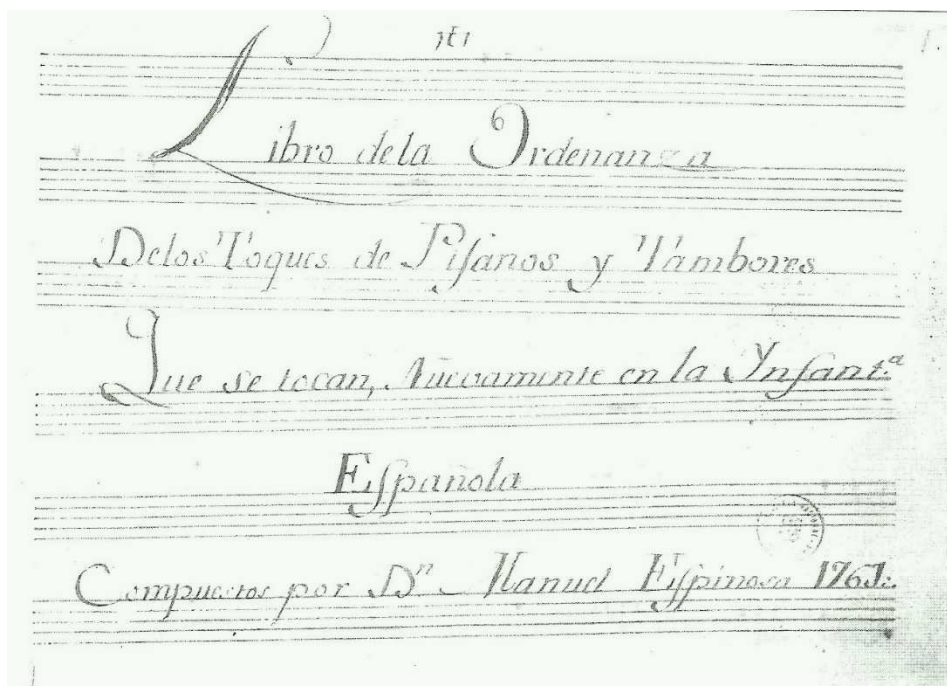 Libro dela Ordenanza
Delos Toques de Pifanos y Tambores
Que se tocan, Nuevamente en la Ynfant.ª
Española
Compuestos por D.n Manuel Espinosa 1761.